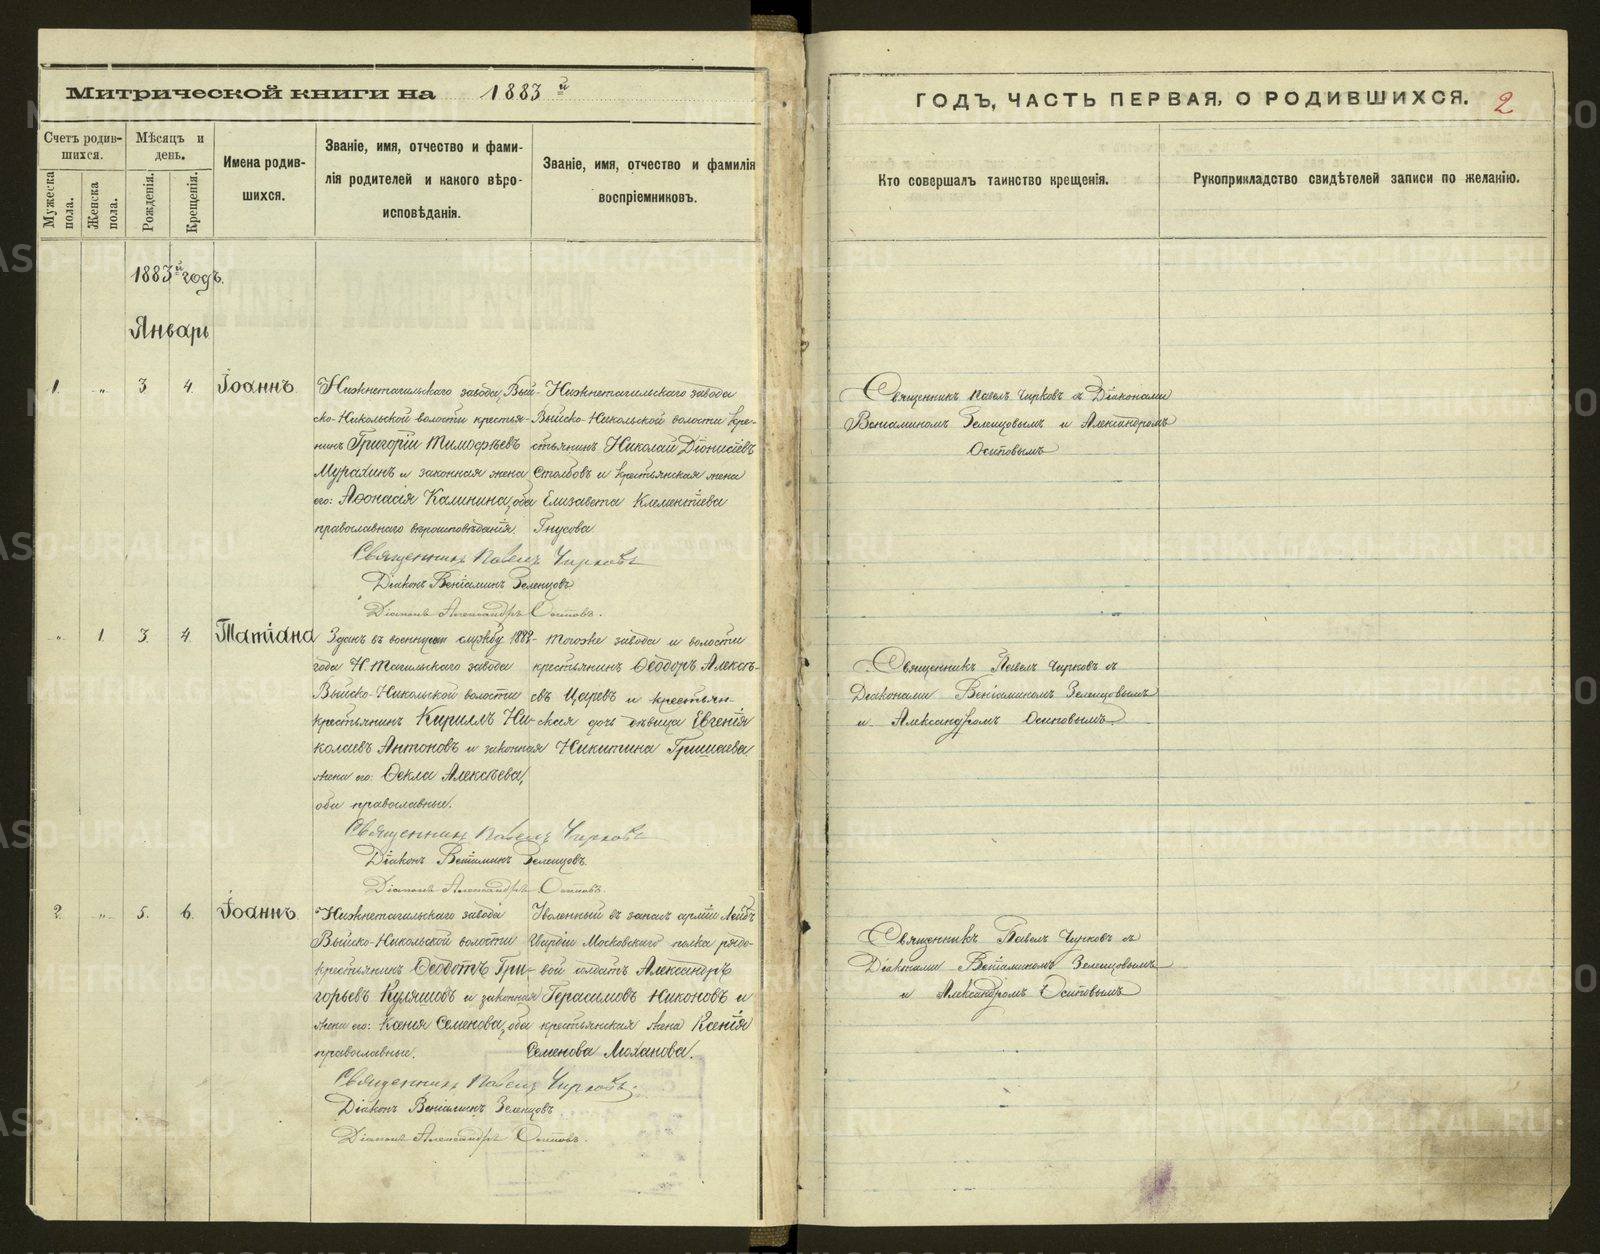 Митрической книги на 1883 й
Счетъ родив-
шихся.
Мужеска
пола.
Женска
пола.
Мѣсяцъ и
день.
Рожденія.
Крещенія.
Имена родив-
шихся.
Званіе, имя, отчество и фами-
лія родителей и какого вѣро-
исповѣданія.
Званіе, имя, отчество и фамилія
воспріемниковъ.
1883й годъ.
Январь
1. „ 3 4. Іоаннъ
Нижнетагильскаго завода, Вый-
ско-Никольской волости крестья-
нинъ Григорій Тимофѣевъ
Мурахинъ и законная жена
его: Афонасія Калинина, оба
православнаго вѣроисповѣданія.
Нижнетагильскаго завода
Выйско-Никольской волости кре-
стьянинъ Николай Діонисіевъ
Столбовъ и крестьянская жена
Елизавета Клементіева
Гнусова
Священникъ Павелъ Чирковъ
Діаконъ Веніаминъ Зеленцовъ
Діаконъ Александръ Осиповъ.
„ 1. 3. 4. Татіана
Зданъ въ военную службу 1882
года Н.Тагильскаго завода
Выйско-Никольской волости
крестьянинъ Кириллъ Ни-
колаевъ Антоновъ и законная
жена его: Ѳекла Алексѣева,
оби православные.
Тогоже завода и волости
крестьянинъ Ѳеодоръ Алексѣ-
евъ Царевъ и крестьян-
ская дочь дѣвица Евгенія
Никитина Гришаева.
Священникъ Павелъ Чирковъ
Діаконъ Веніаминъ Зеленцовъ.
Діаконъ Александръ Осиповъ.
2. „ 5. 6. Іоаннъ
Нижнетагильскаго завода
Выйско-Никольской волости
крестьянинъ Ѳеодотъ Гри-
горьевъ Куляшовъ и законная
жена его: Ксенія Семенова, оба
православные.
Уволенный въ запасъ арміи Лейбъ
Гвардіи Московскаго полка рядо-
вой солдатъ Александръ
Герасимовъ Никоновъ и
крестьянская жена Ксенія
Семенова Моханова.
Священникъ Павелъ Чирковъ.
Діаконъ Веніаминъ Зеленцовъ
Діаконъ Александръ Осиповъ.
ГОДЪ, ЧАСТЬ ПЕРВАЯ, О РОДИВШИХСЯ. 2
Кто совершалъ таинство крещенія.
Рукоприкладство свидѣтелей записи по желанію.
Священникъ Павелъ Чирковъ съ Діаконами
Веніаминомъ Зеленцовымъ и Александромъ
Осиповымъ
Священникъ Павелъ Чирковъ съ
Діаконами Веніаминомъ Зеленцовымъ
и Александромъ Осиповымъ.
Священникъ Павелъ Чирковъ съ
Діаконами Веніаминомъ Зеленцовымъ
и Александромъ Осиповымъ
METRIKI.GASO-URAL.RU